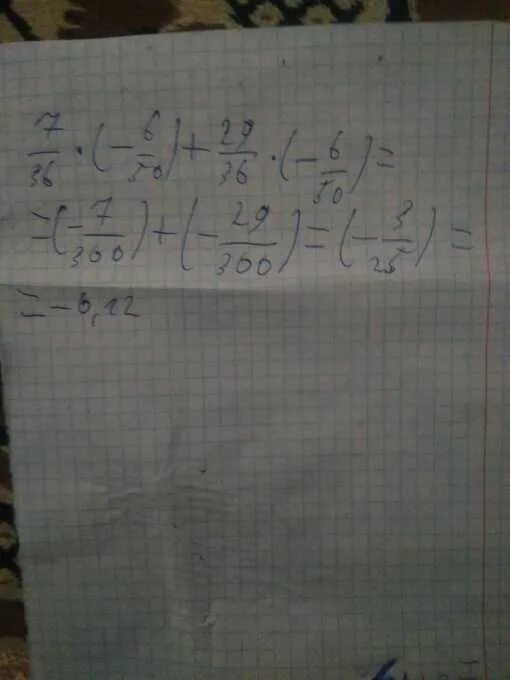 7/36 · (- 6/50) + 29/36 · (- 6/50) =
= (- 7/300) + (- 29/300) = (- 3/25) =
= - 0,12